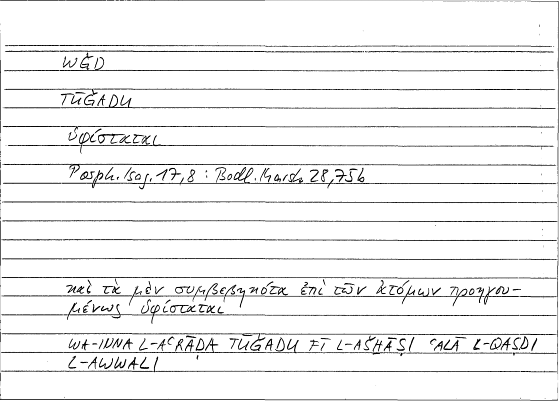 WǦD
TŪǦADU
ὑφίσταται
Porph. Isag. 17,8 : Bodl. Marsh. 28,75b
καὶ τὰ μὲν συμβεβηκότα ἐπὶ τῶν ἀτόμων προηγου-
μένως ὑφίσταται
WA-INNA L-AʿRĀḌA TŪǦADU FĪ L-AŠḪĀṢI ʿALĀ L-QAṢDI
L-AWWALI